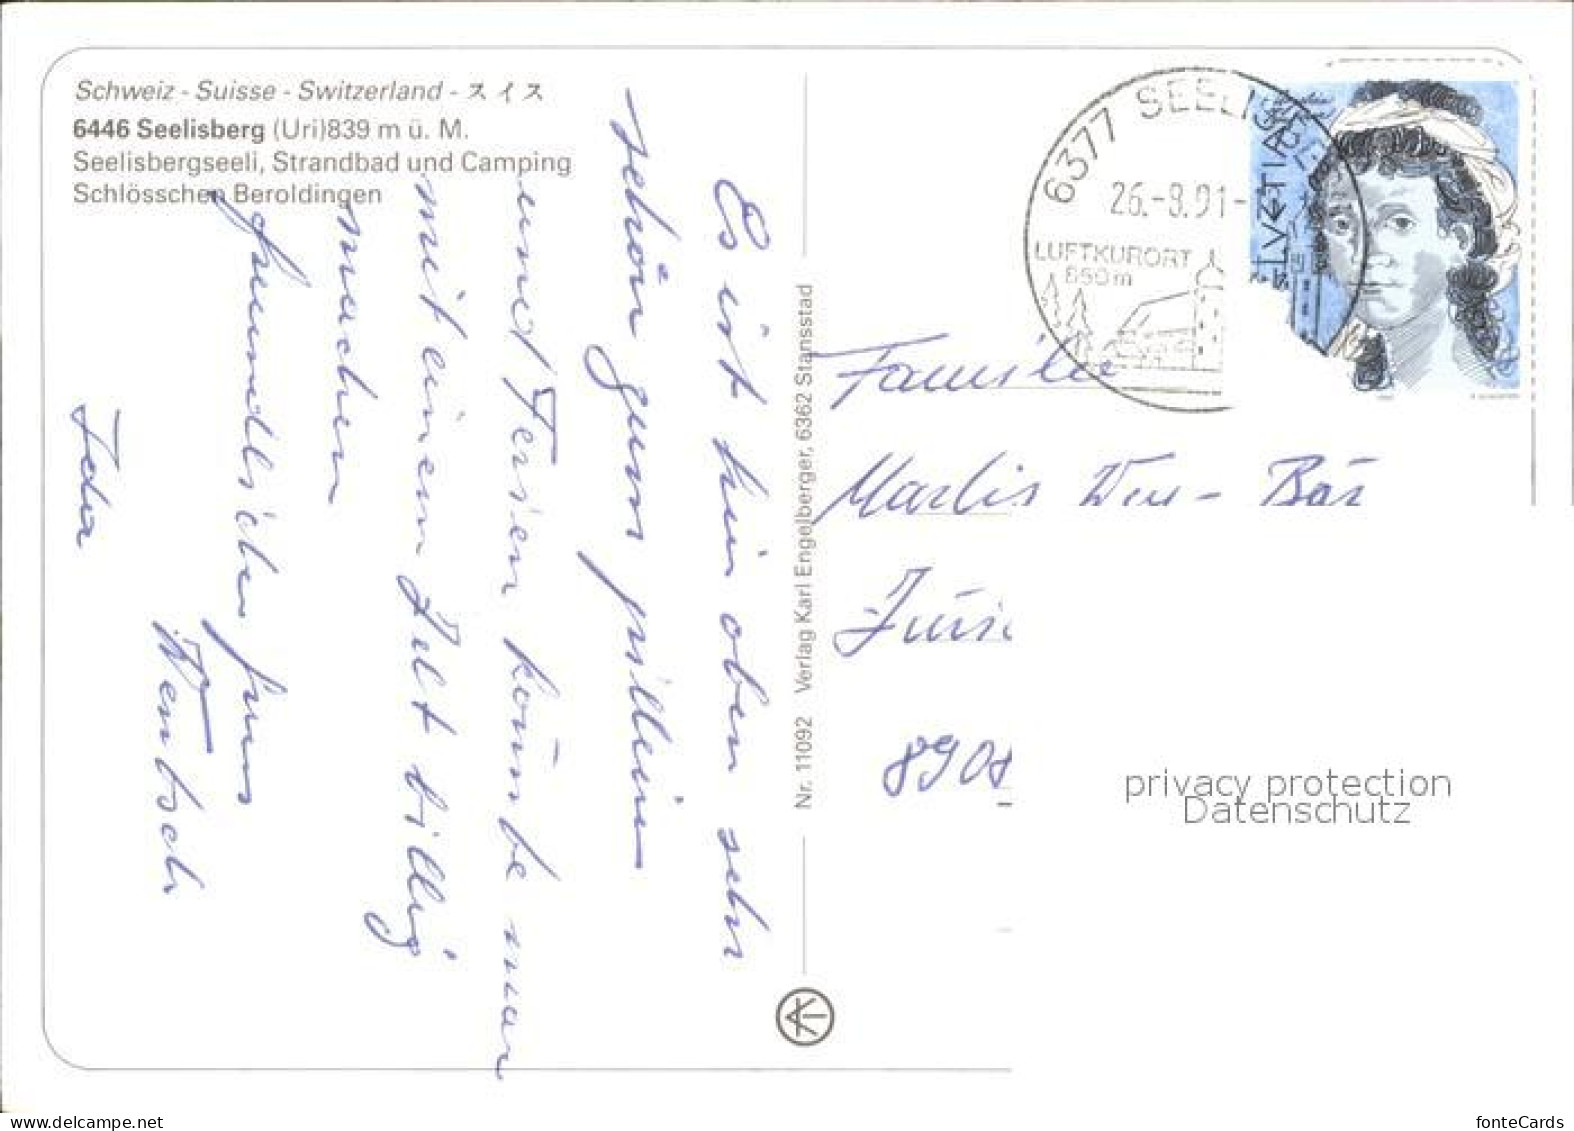 Schweiz - Suisse - Switzerland - スイス
6446 Seelisberg (Uri)839 m ü. M.
Seelisbergseeli, Strandbad und Camping
Schlösschen Beroldingen
Es ist hier oben sehr
schön zum
und Ferien könnte man
mit einem Zelt billig
machen
freundlicher
Ida
Nr. 11092 Verlag Karl Engelberger, 6362 Stansstad
6377 SEELISBERG
26.-8.91-
LUFTKURORT
850m
HELVETIA
Familie
Marlis
8908
privacy protection
Datenschutz
delcampe.net
fonteCards